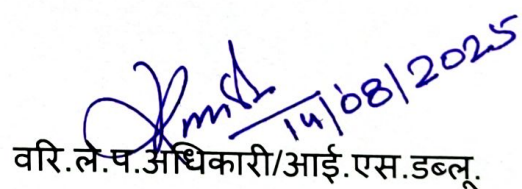 14/08/2025
वरि.ले.प.अधिकारी/आई.एस.डब्लू.